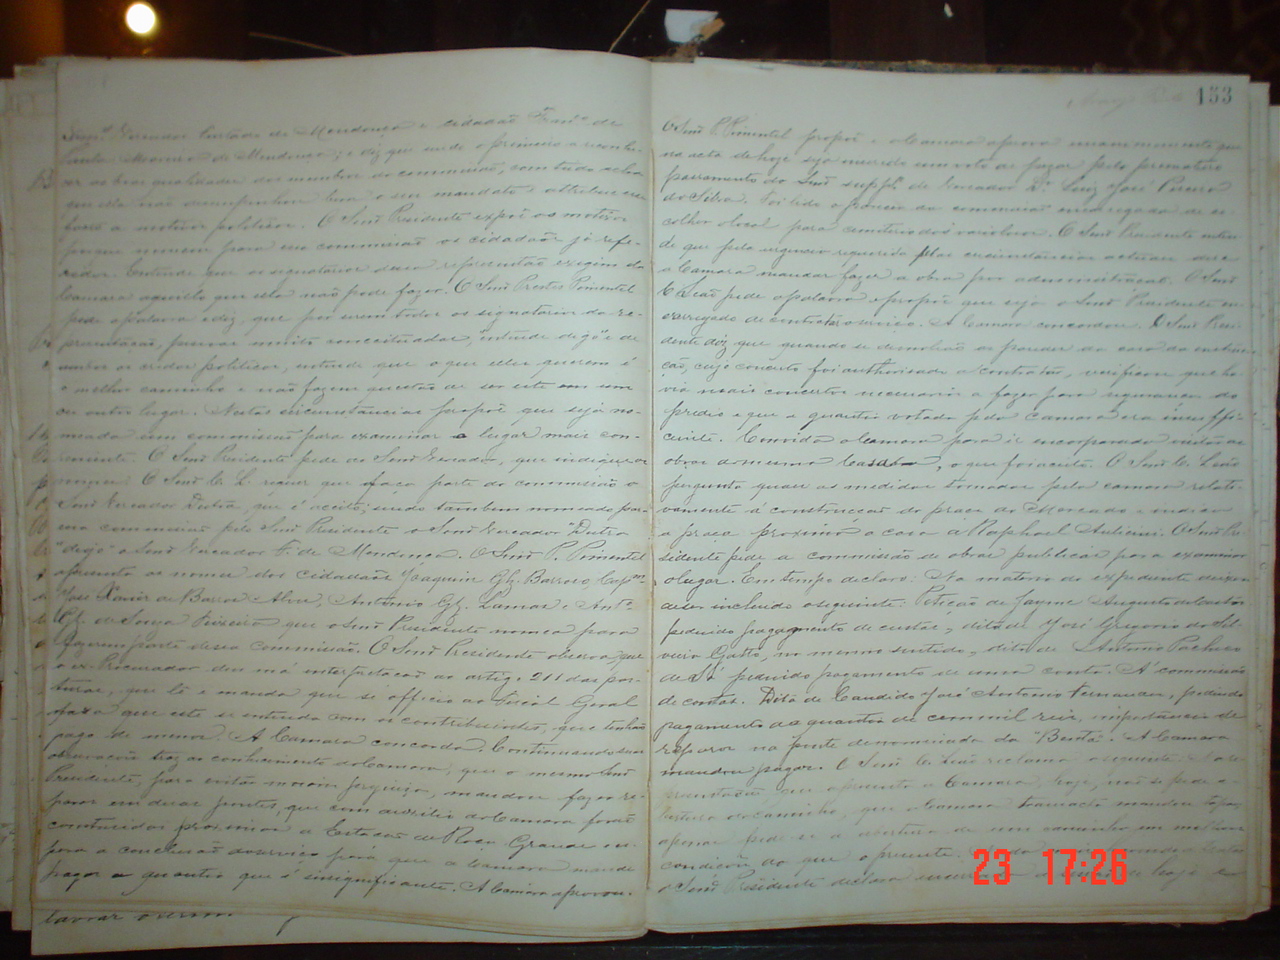 Vereador Furtado de Mendonça e cidadão Franco. de
Paula Moreira de Mendonça; e diz que sendo o primeiro a reconhe-
cer as boas qualidades dos membros da commissão, com tudo acha
que ella não desempenhou bem o seu mandato e attribue esse
facto a motivos politicos. O Senr Presidente expõe os motivos
porque nomeou para essa commissão os cidadãos já refe-
ridos. Entende que os signatarios dessa representação exigem da
Camara aquillo que ella não pode fazer. O Senr Prestes Pimentel
pede a palavra e diz, que por serem todos os signatarios da re-
presentação, pessoas muito conceituadas,
politicos, entende que o que elles querem é
o melhor caminho e não fazem questão de ser este ou um
ou outro lugar. Nestas circumstancias propõe que seja no-
meada uma commissão para examinar o lugar mais con-
veniente. O Senr Presidente pede ao Senr Vereador, que indique os
nomes. O Senr C. L. requer que faça parte da commissão o
Senr Vereador Dutra, que é aceito; sendo tambem nomeado para
essa commissão pelo Senr Presidente o Senr Vereador "Dutra
"digo" o Senr Vereador F. de Mendonça. O Senr P. Pimentel
apresenta os nomes dos cidadãos Joaquim Glz. Barroso, Capm
José Xavier de Barros e Alva, Antonio Glz. Lamas e Anto
Glz. de Souza Teixeira que o Senr Presidente nomea para
fazerem parte dessa commissão. O Senr Presidente observa que
o ex-Procurador deu má interpretação ao artigo 211 das pos-
turas, que lê e manda que se officie ao Fiscal Geral
para que este se entenda com os contribuintes, que tenhão
pago de menos. A Camara concorda. Continuando suas
observações traz ao conhecimento da Camara, que o mesmo Senr
Presidente, para evitar maior prejuizo, mandou fazer re-
paros em duas pontes, que com auxilio da Camara forão
construidas proximas a Estação de Roça Grande
para a conclusão do serviço pede que a Camara mande
pagar a quantia que é insignificante. A Camara approvou.
lavrar o
153
O Senr P. Pimentel propõe e a Camara aprova unanimemente que
na acta de hoje seja inserido um voto de pezar pelo prematuro
passamento do Senr suppte de Vereador Dr Luiz José Pereira
da Silva. Foi lido o parecer da commissão encarregada de es-
colher o local para cemiterio dos variolosos. O Senr Presidente enten-
de que pela urgencia requerida pelas circumstancias actuaes deve
a Camara mandar fazer a obra por administração. O Senr
C Leão pede a palavra e propõe que seja o Senr Presidente en-
carregado de contratar o serviço. A Camara concordou. O Senr Presi-
dente diz que quando se demolirão as paredes da casa de instruc-
ção, cujo concerto foi authorisado a contratar, verificou que ha-
via mais concertos necessarios a fazer para segurança do
predio e que a quantia votada pela camara era insuffi-
ciente. Convida a Camara para ir encorporada visitar as
obras da mesma casa, o que foi aceito. O Senr C. Leão
pergunta quaes as medidas tomadas pela camara relati-
vamente á construcção da praça do Mercado e indica
a praça proxima a casa a Raphael Anticini. O Senr Pre-
sidente pede a commissão de obras publicas para examinar
o lugar. Em tempo declaro: Na materia do expediente deixou
de ser incluido o seguinte: Petição de Jayme Augusto de Castro
pedindo pagamento de custas, dita de José Gregorio da Sil-
veira Gatto, no mesmo sentido, dita de Antonio Pacheco
de Sá pedindo pagamento de uma conta. Á commissão
de contas. Dita de Candido José Antonio Fernandes, pedindo
pagamento da quantia de cem mil reis, importancia de
reparos na ponte denominada da "Benta". A Camara
mandou pagar. O Senr C. Leão reclama o seguinte: Na re-
presentação, que apresentou a Camara, hoje, não se pede a-
bertura do caminho, que a Camara transacta mandou tapar,
apenas pede-se a abertura de um caminho em melhores
condições do que o presente.
o Senr Presidente declara encerrada